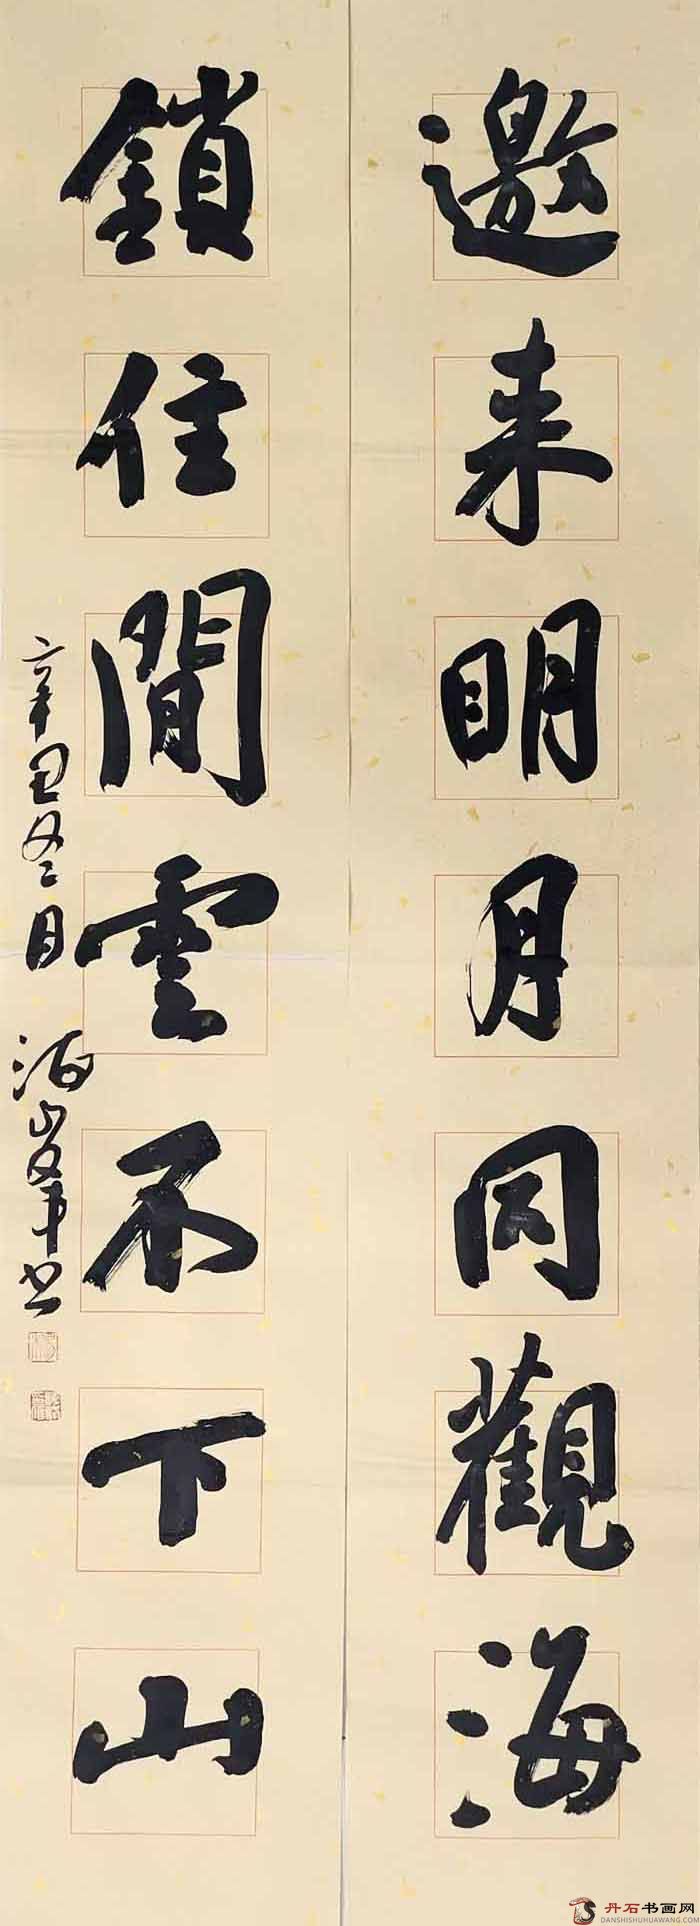 邀来明月同觀海
鎖住閒雲不下山
辛丑冬月
海峯书
丹石书画网
DANSHISHUHUAWANG.COM